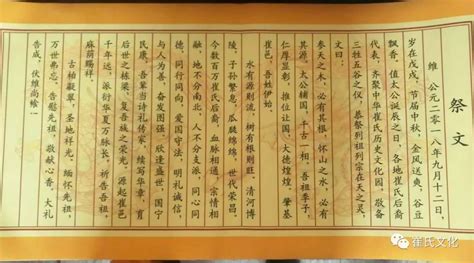 祭文
维 公元二零一八年九月十二日，
岁在戊戌，节届中秋，金风送爽，谷豆
飘香，值太公诞辰之日，各地崔氏后裔
代表，齐聚中华崔氏历史文化园，敬备
三牲五谷之仪，恭祭列祖列宗在天之灵，
文曰：
参天之木，必有其根，怀山之水，必有
其源。太公辅国，千古一相，吾祖季子，
仁厚显彰，推位让国，大德煌煌，肇基
崔邑，吾姓伊始。
水有源则流，树有根则旺。清河博
陵，子孙繁息，瓜瓞绵绵，世代荣昌，
今数百万崔氏后裔，血脉相通，宗情相
融，地不分南北，人不分支派，同心同
德，同行同向，爱国守法，明礼诚信，
与人为善，奋发图强。欣逢盛世，国宁
民康，吾辈当诗礼传家，续写华章，衍
后世之栋梁，复吾族之荣光，源起崔邑
千年远，派衍华夏万脉长，祈告吾祖，
麻荫赐祥。
古柏凝翠，圣地祥光，缅怀先祖，
万世弗忘，告慰先祖，敬献心香，大礼
告成，伏维尚飨！
崔氏文化